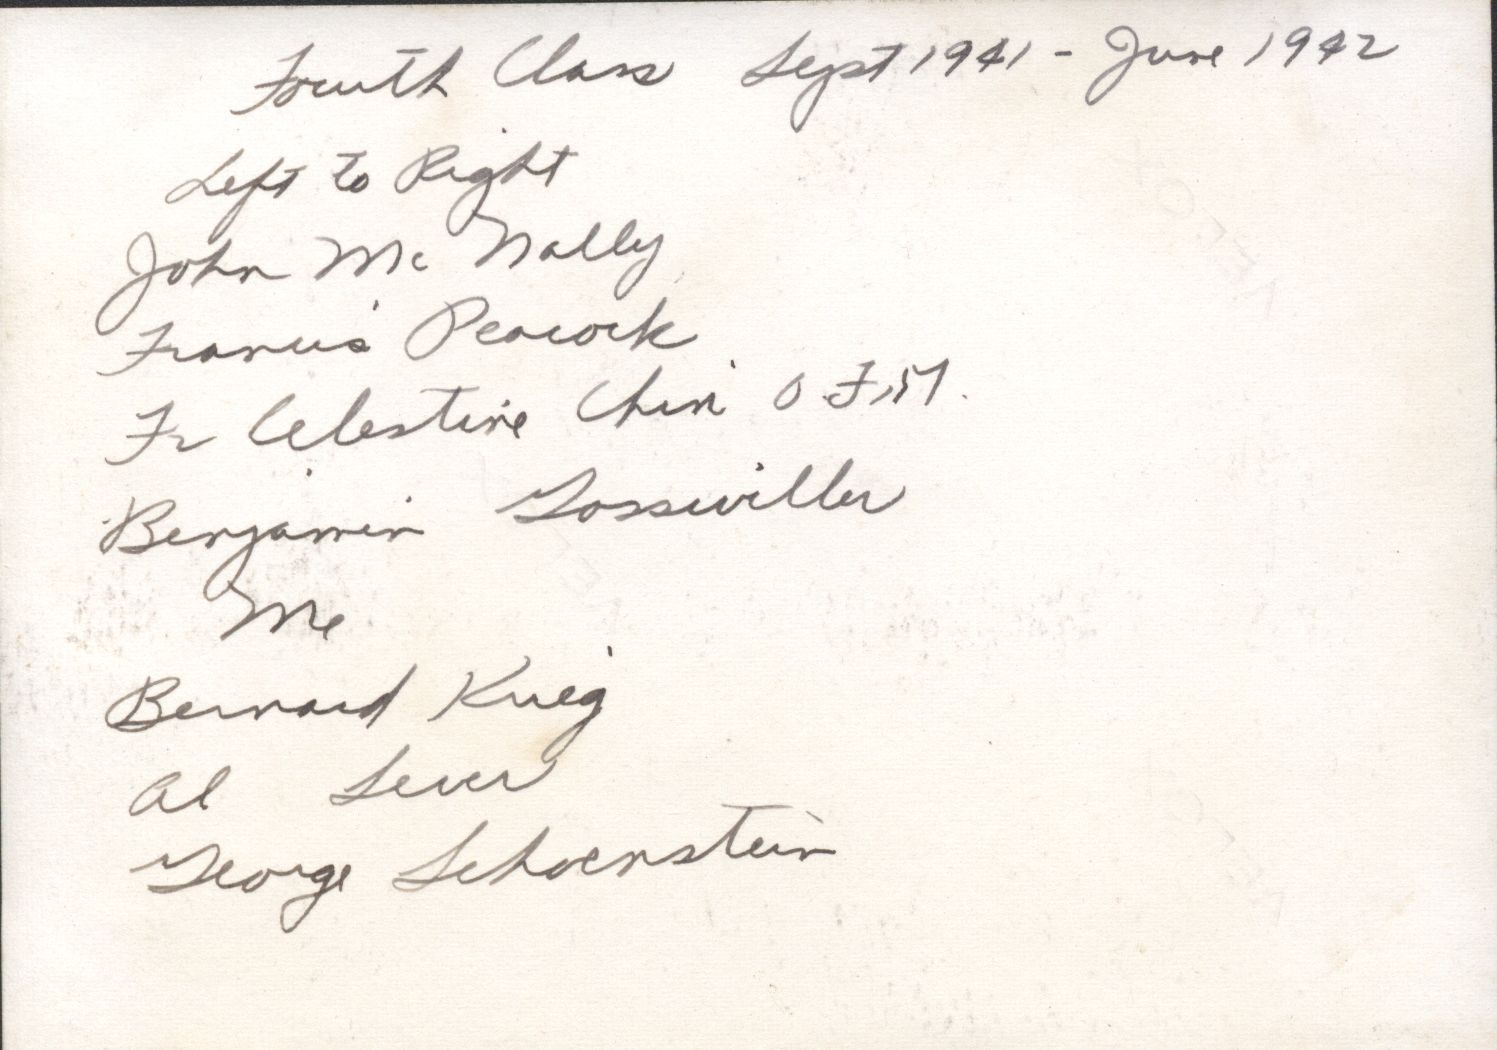 Fourth Class Sept 1941 - June 1942
Left to Right
John Mc Nally
Francis Peacock
Fr Celestine Chin O.F.M.
Benjamin Gosswiller
Me
Bernard Krieg
Al Sever
George Schoenstein